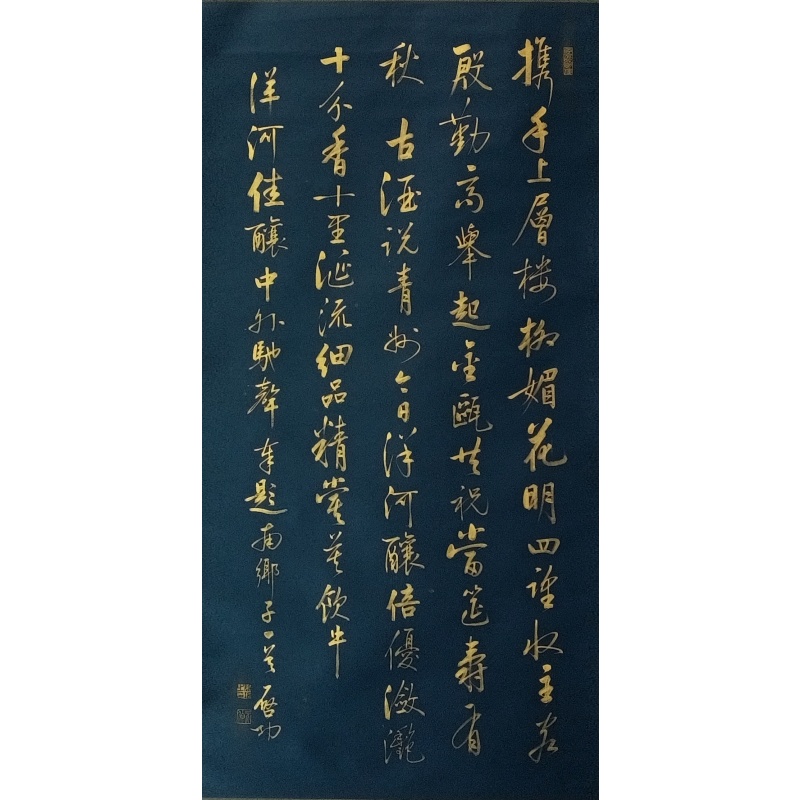 携手上層楼柳媚花明四望收主客
殷勤高舉起金甌共祝當筵壽有
秋古酒説青州今日洋河釀倍優瀲灩
十分香十里涎流細品精嘗莫飲牛
洋河佳釀中外馳聲奉題南鄉子一首啓功